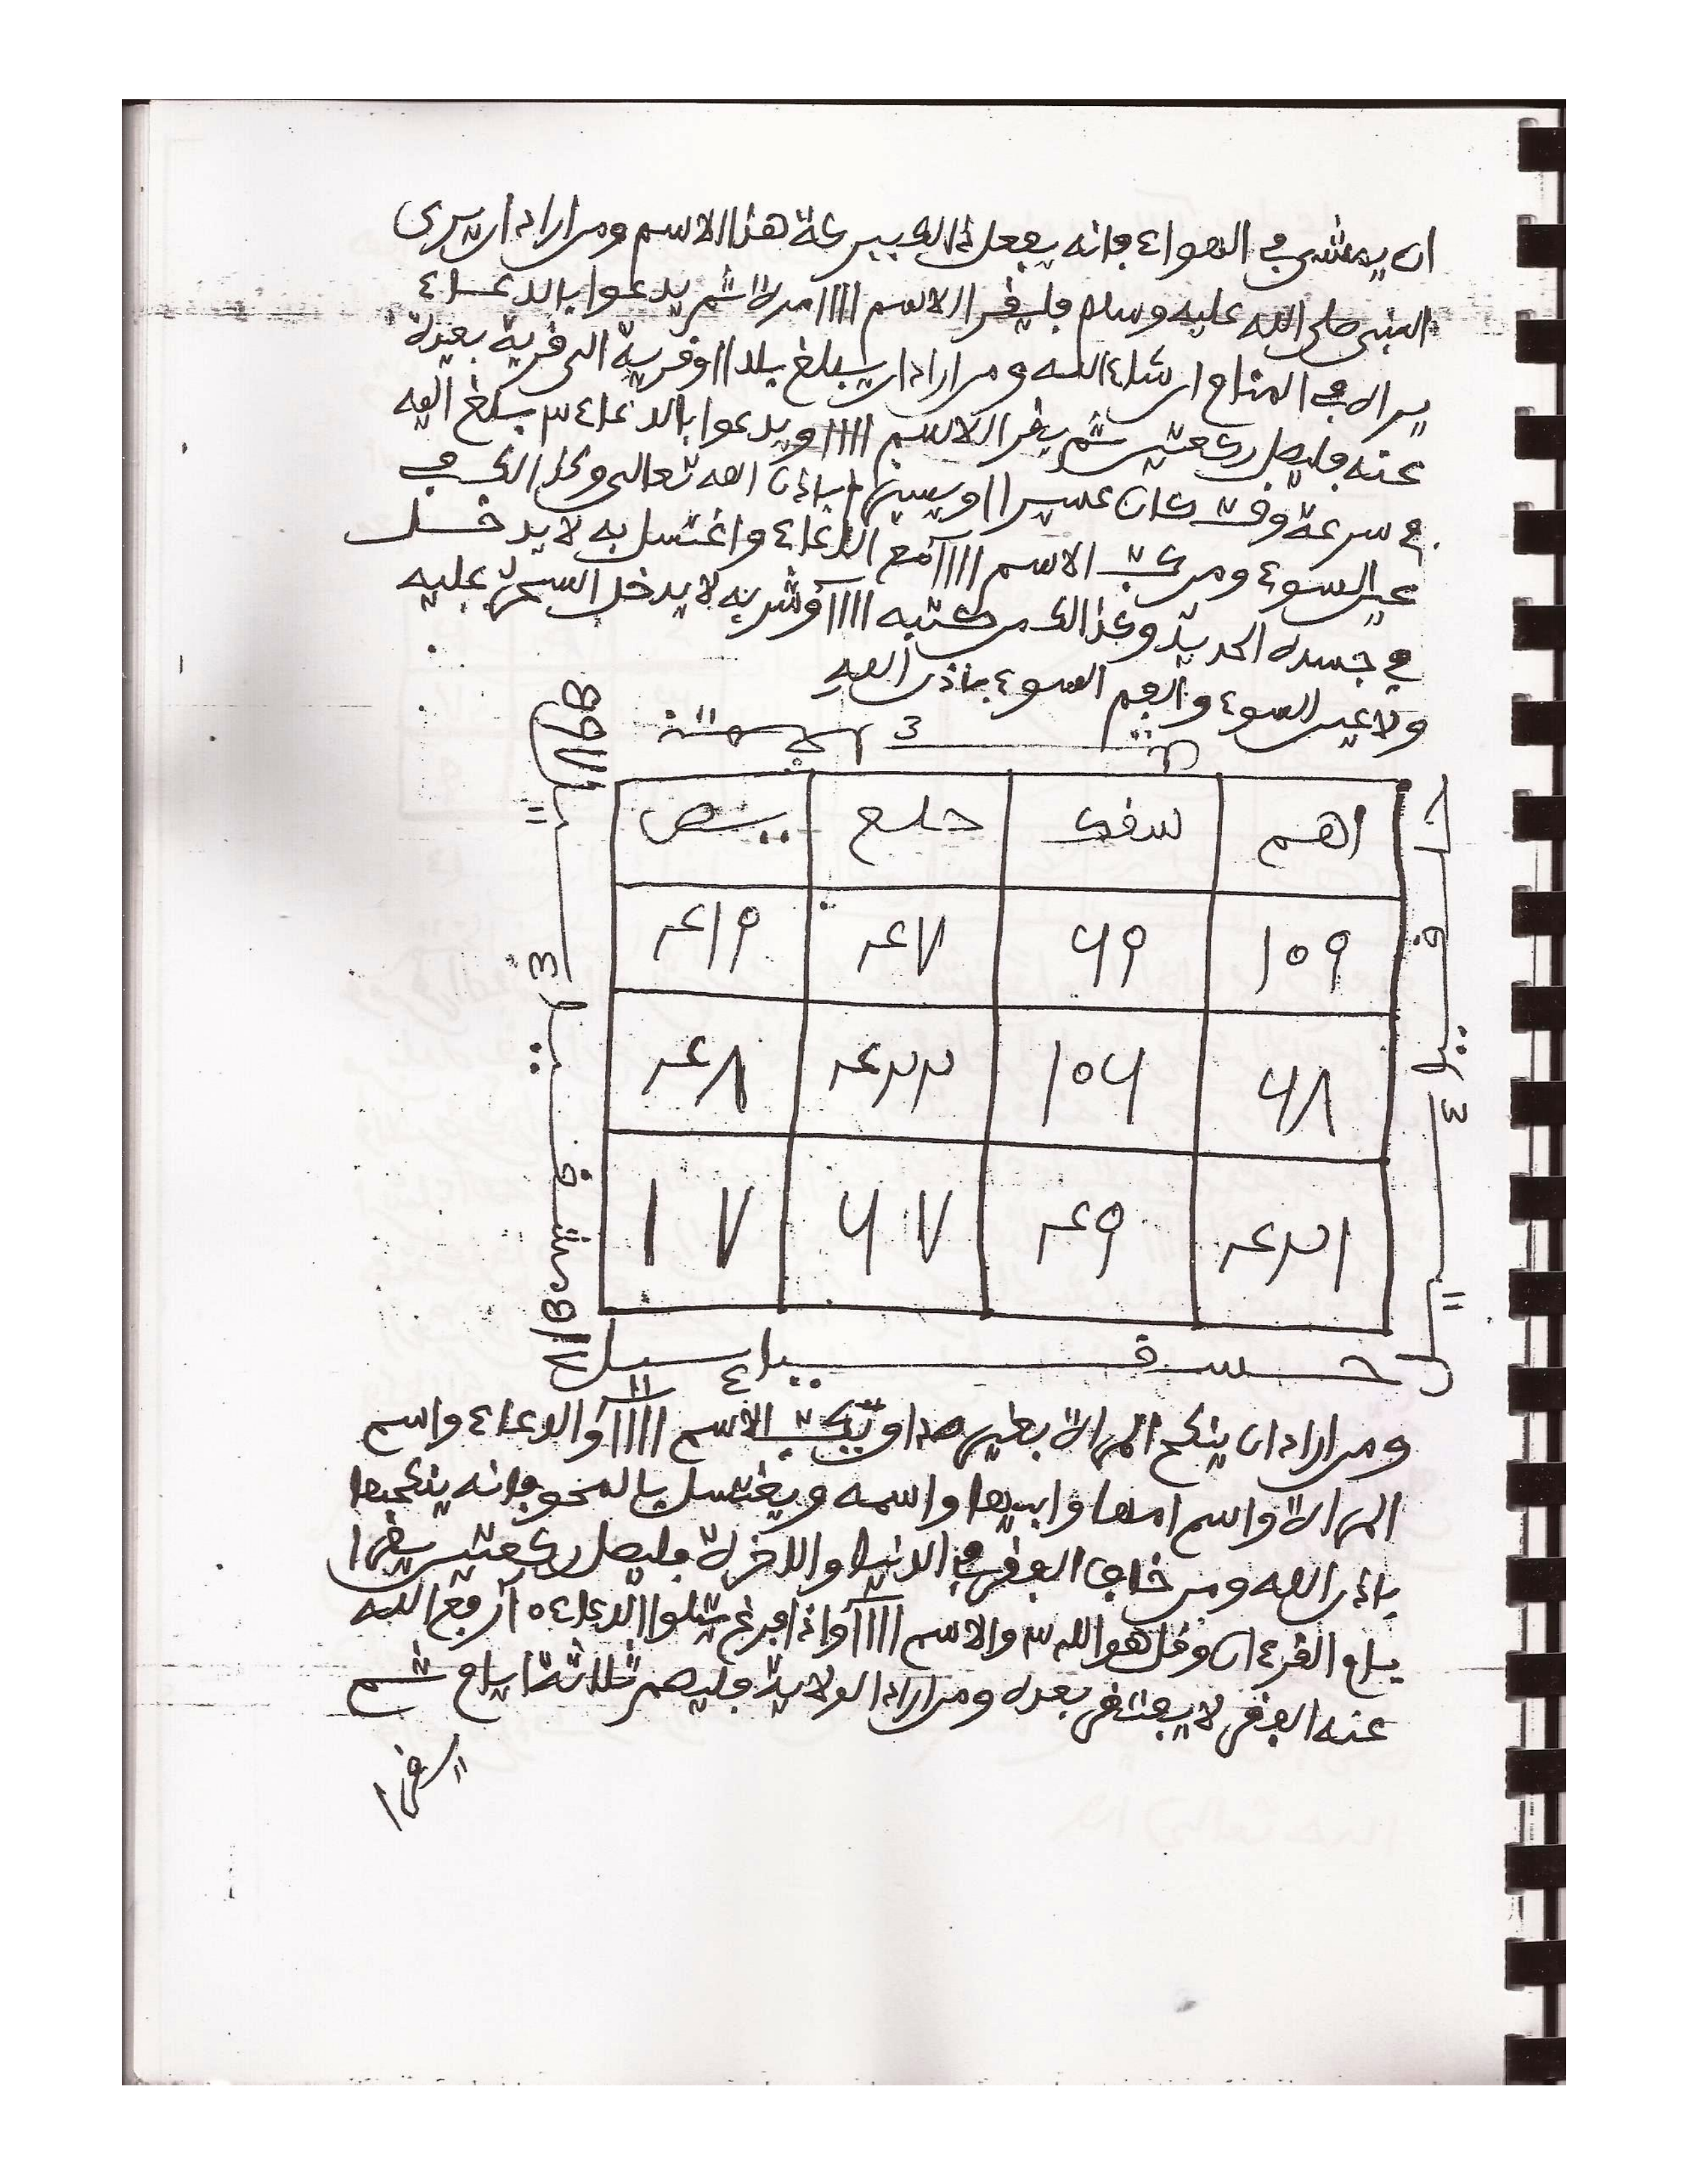 ان يمشى في الهواء فانه يفعل ذالك ببركة هذا الاسم ومن اراد ان يرى
النبى صلى الله عليه وسلم فليفرا الاسم ١١١١ مرة ثم يدعوا بالدعاء
يراه في المنام ان شاء الله ومن اراد ان يبلغ بلدا او قرية الى قرية بعيدة
عنه فليصل ركعتين ثم يقرا الاسم ١١١١ ويدعوا بالدعاء ٣ يبلغ اليه
في سرعة وقت كان عسيرا او يسيرا باذن الله تعالى وكذالك في
عين السوء ومن كتب الاسم ١١١١ مع الدعاء واغتسل به لا يدخل
في جسده الحديد وكذالك من كتبه ١١١١ وشربه لا يدخل السحر عليه
ولا عين السوء والفم السوء باذن الله
اهم سفك حلع يص
١٥٩ ٦٩ ع٧ ع١٩
٦٨ ١٥٦ ع٢٢ ع٨
ع٢١ ع٩ ٦٧ ١٧
ومن اراد ان ينكح المراة بغير صداو يكتب الاسم ١١١١ والدعاء واسم
المراة واسم امها وابيها واسمه ويغتسل بالمحو فانه ينكحها
باذن الله ومن خاف الفقر في الدنيا والاخرة فليصل ركعتين يقرا
بام القرءان وقل هو الله ٣ والاسم ١١١١ واذا فرغ يتلوا الدعاء ٥ ارفع الله
عنه الفقر لا يفتقر بعده ومن اراد الولاية فليصم ثلاثة ايام ثم
يقرا